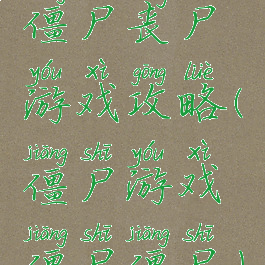 僵尸丧尸
yóu xì gōng lüè
游戏攻略(
jiāng shī yóu xì
僵尸游戏
jiāng shī jiāng shī
僵尸僵尸)